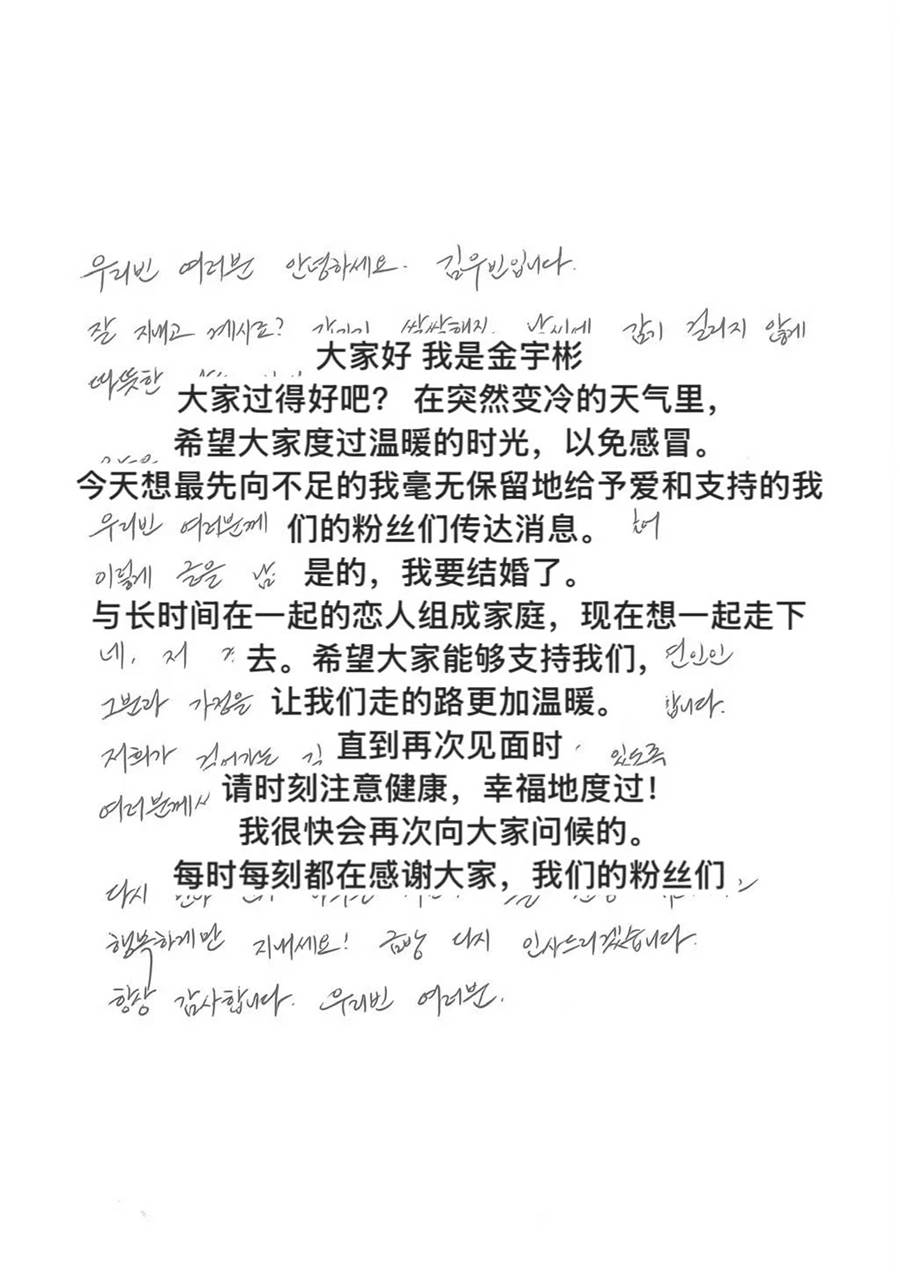 우리빈 여러분 안녕하세요. 김우빈입니다.
잘 지내고 계시죠? 갑자기 쌀쌀해진 날씨에 감기 걸리지 않게
大家好 我是金宇彬
따뜻한
大家过得好吧？ 在突然变冷的天气里，
希望大家度过温暖的时光，以免感冒。
今天想最先向不足的我毫无保留地给予爱和支持的我
우리빈 여러분께 们的粉丝们传达消息。
이렇게 글을 是的，我要结婚了。
与长时间在一起的恋人组成家庭，现在想一起走下
네, 저 去。希望大家能够支持我们, 연인인
그분과 가정을 让我们走的路更加温暖。 합니다.
저희가 걸어가는 直到再次见面时 있도록
여러분께서 请时刻注意健康，幸福地度过！
我很快会再次向大家问候的。
다시 每时每刻都在感谢大家，我们的粉丝们
행복하게만 지내세요! 금방 다시 인사드리겠습니다.
항상 감사합니다. 우리빈 여러분.